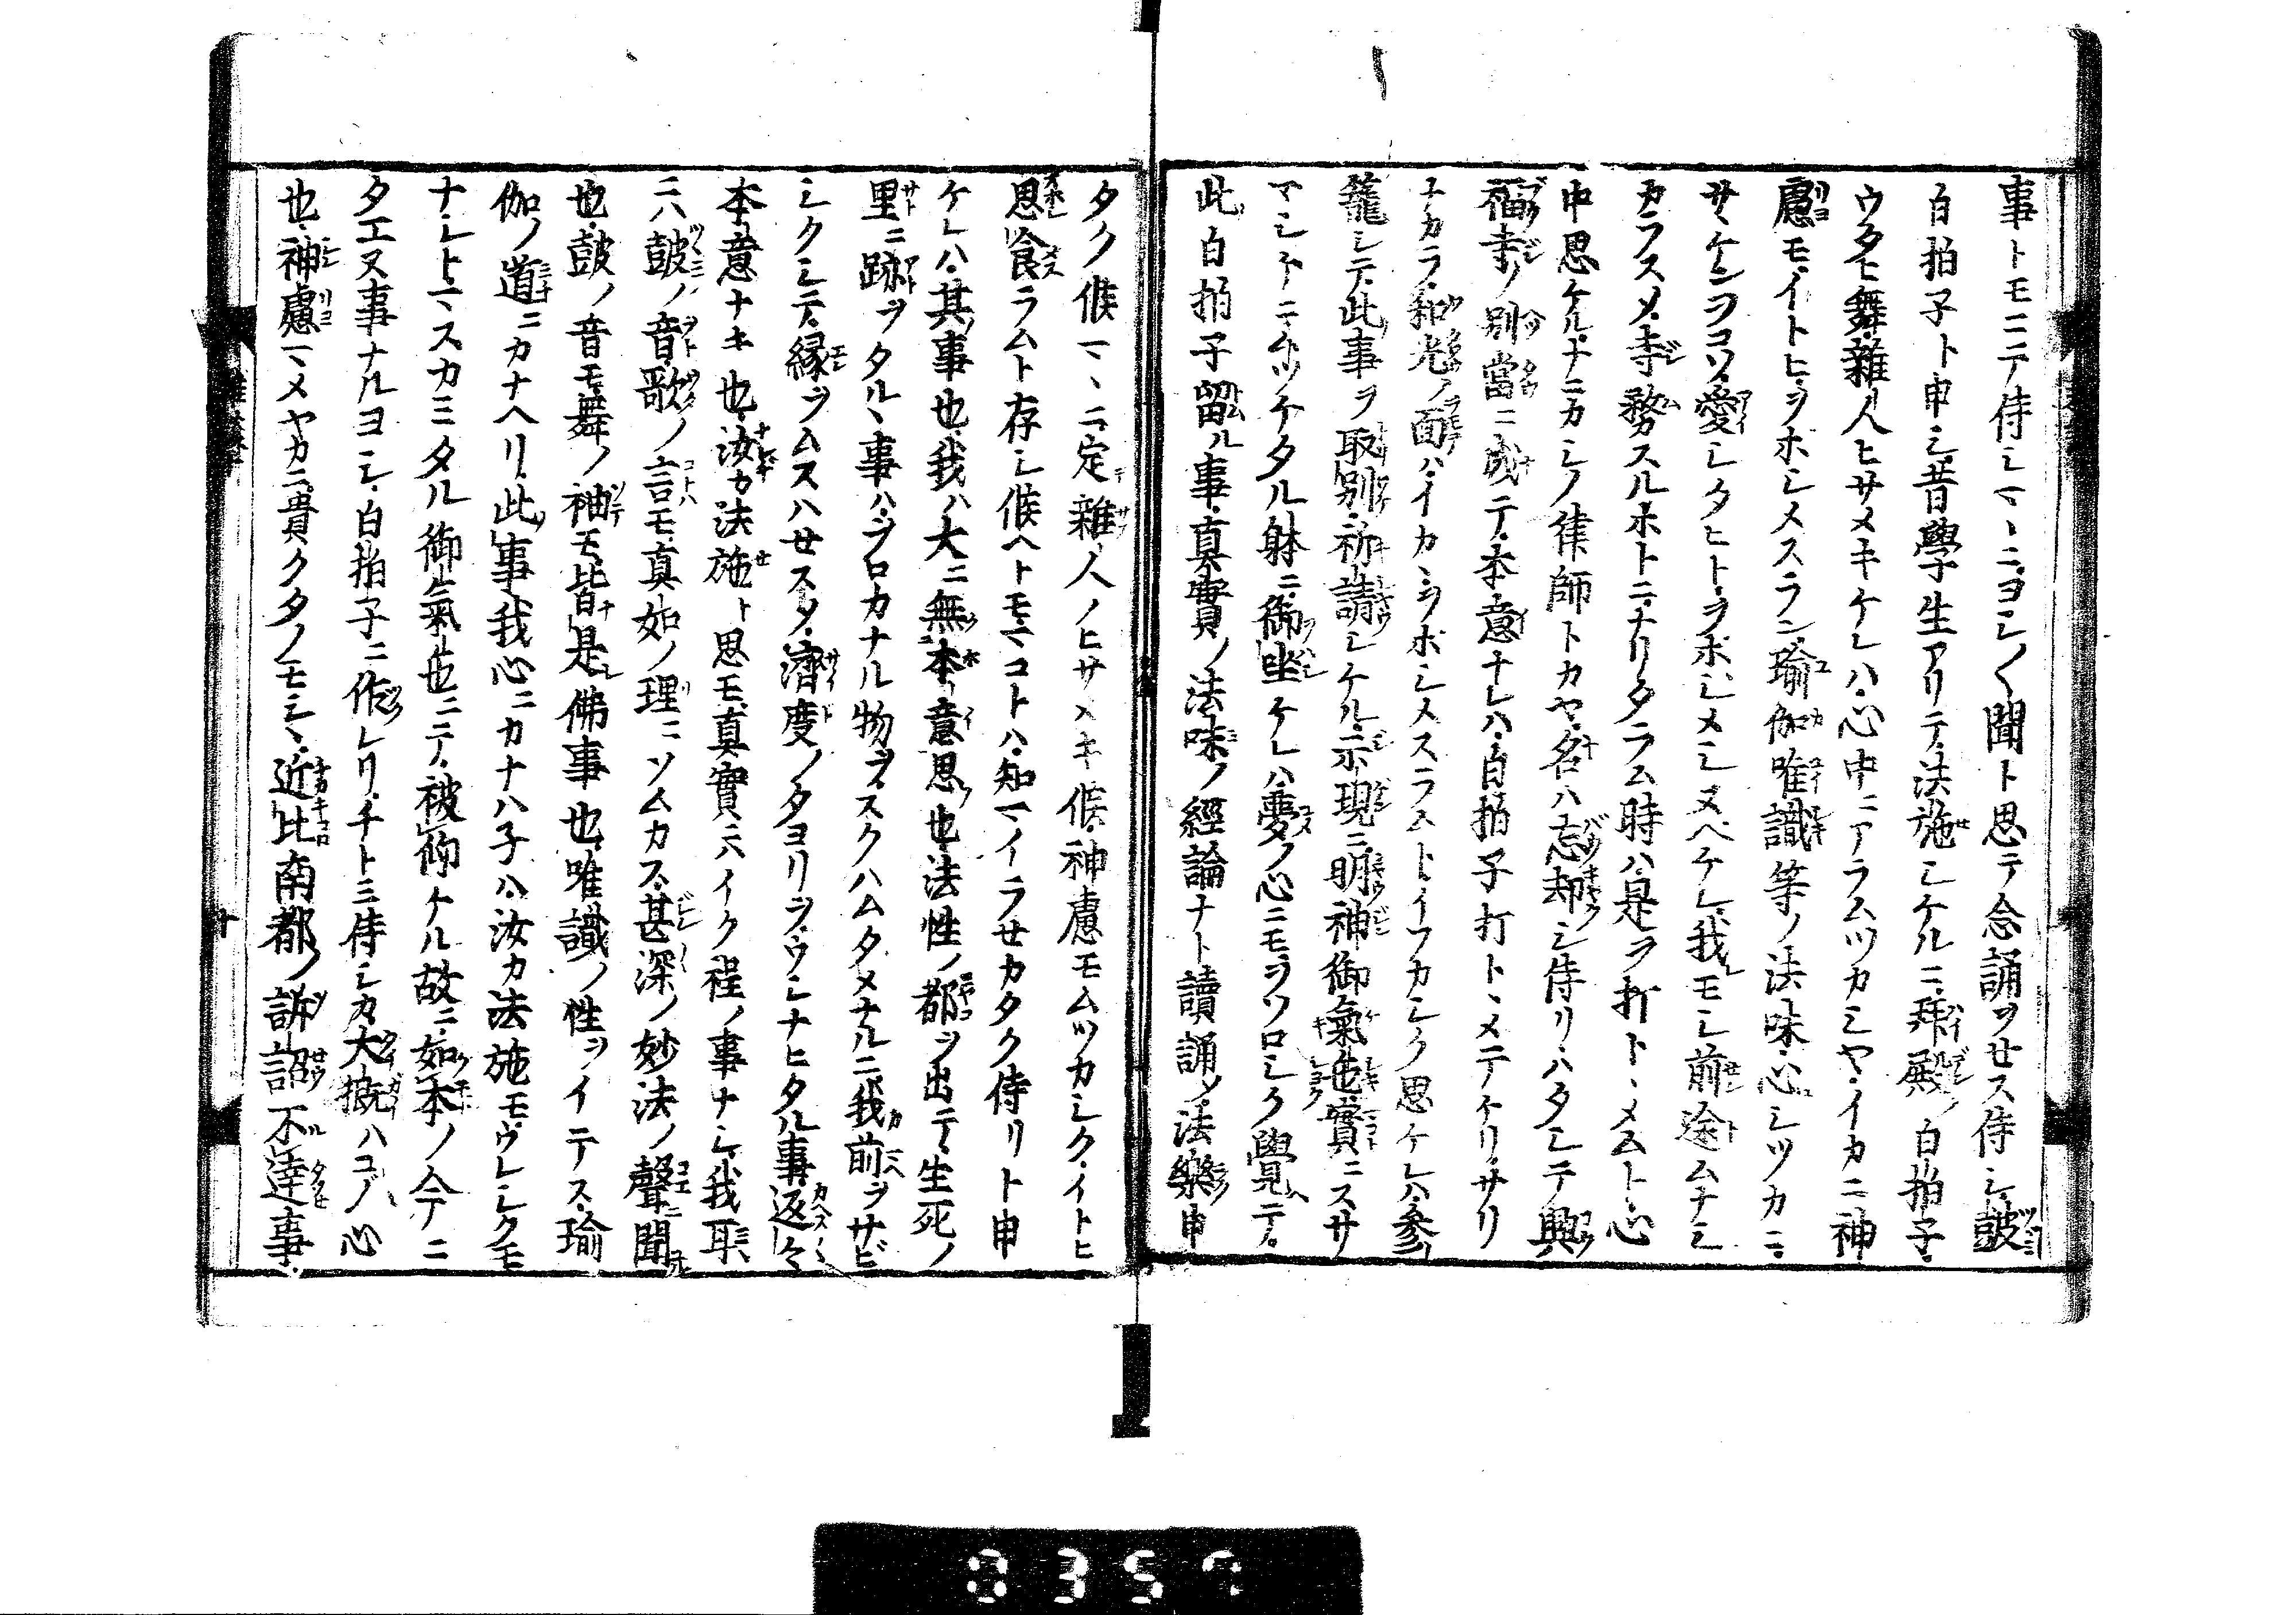 事トモニテ侍シマヽニヨシ〱聞ト思テ念誦ヲセス侍シ皷
白拍子ト申シ昔學生アリテ法施シケルニ拜殿ノ白拍子
ウタヒ舞雜人ヒサメキケレハ心中ニアラムツカシヤイカニ神
慮モイトヒヲホシメスラン瑜伽唯識等ノ法味心シツカニ
サヽケンヲコソ愛シタヒトヲホシメシヌヘケレ我モシ前途ムナシ
カラスメ寺務スルホトニナリタラム時ハ是ヲ打トヽメムト心
中思ケルナニカシノ律師トカヤ名ハ忘却シ侍リハタシテ興
福寺ノ別當ニ成テ本意ナレハ白拍子打トヽメテケリサリ
ナカラ和光ノ面ハイカヽヲホシメスラムトイツカシク思ケレハ參
籠シテ此事ヲ取別祈請シケル示現ニ明神御氣色實ニスサ
マシケニケツケタル躰ニ御坐ケレハ夢ノ心ニモヲソロシク覺テ
此白拍子留ル事真實ノ法味ノ經論ナト讀誦ノ法樂申
タク候マヽニ定雜人ノヒサメキ候神慮モムツカシクイトヒ
思食ラムト存シ候ヘトモマコトハ知マイラセカタク侍リト申
ケレハ其事也我ハ大ニ無本意思也法性ノ都ヲ出テ生死ノ
里ニ跡ヲタルヽ事ハヲロカナル物ヲスクハムタメナルニ我前ヲサビ
シクシテ縁ヲムスハセス濟度ノタヨリヲウシナヒタル事返〻
本意ナキ也汝カ法施ト思モ真實ニハイク程ノ事ナシ我耳
ニハ皷ノ音歌ノ言モ真如ノ理ニソムカス甚深ノ妙法ノ聲ニ聞
也皷ノ音モ舞ノ袖モ皆是佛事也唯識ノ性ヲイテス瑜
伽ノ道ニカナヘリ此事我心ニカナハ子ハ汝カ法施モウレシクモ
ナシトマスカミタル御氣色ニテ被仰ケル故ニ如本ノ今ニ
タエヌ事ナルヨシ白拍子ニ作レリチト三侍シカ大槪ハコノ心
也神慮マメヤカニ貴クタノモシヽ近比南都ノ訴詔不達事